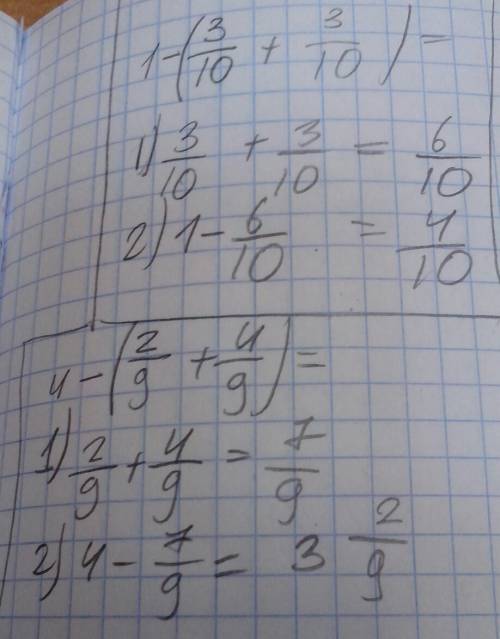 1-(3/10 + 3/10) =
1) 3/10 + 3/10 = 6/10
2) 1 - 6/10 = 4/10
4-(2/9 + 4/9) =
1) 2/9 + 4/9 = 7/9
2) 4 - 7/9 = 3 2/9